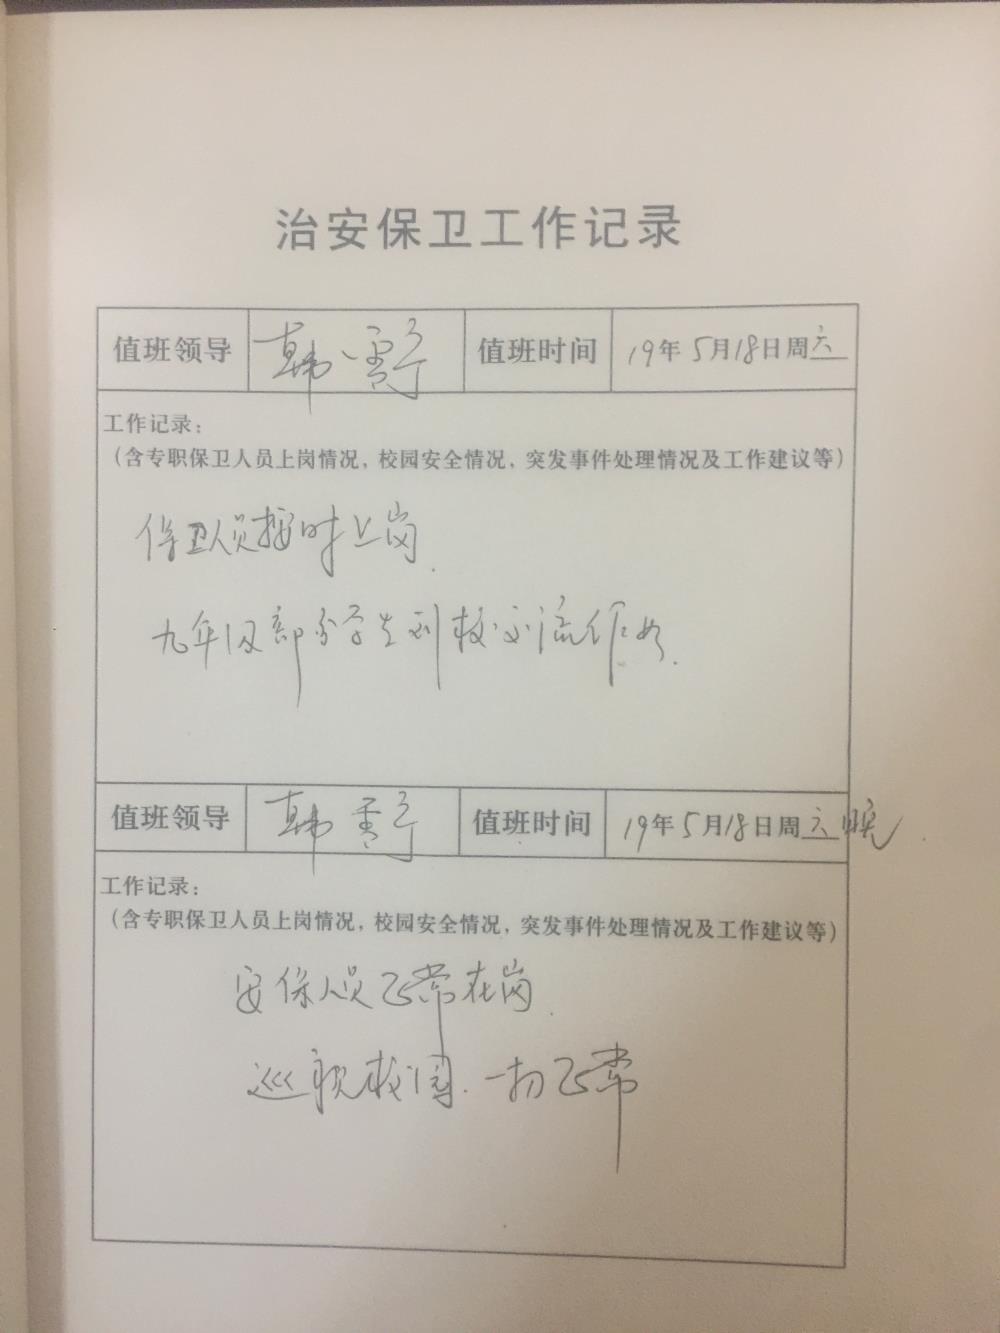 治安保卫工作记录
值班领导 韩雪 值班时间 19年5月18日周六
工作记录：
（含专职保卫人员上岗情况，校园安全情况，突发事件处理情况及工作建议等）
保卫人员按时上岗.
九年级部分学生到校交流作业.
值班领导 韩雪 值班时间 19年5月18日周六晚
工作记录：
（含专职保卫人员上岗情况，校园安全情况，突发事件处理情况及工作建议等）
安保人员正常在岗.
巡视校园.一切正常